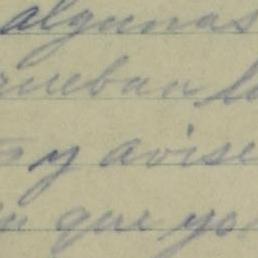 algunas
rueban l
y avise
que yo